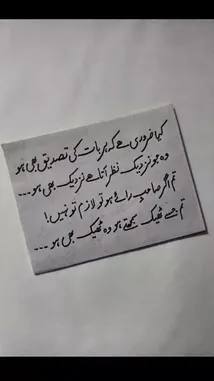 کیا ضروری ہے کہ ہر بات کی تصدیق بھی ہو
وہ جو نزدیک نظر آتا ہے نزدیک بھی ہو ---
تم اگر صاحبِ رائے ہو تو لازم تو نہیں!
تم جسے ٹھیک سمجھتے ہو وہ ٹھیک بھی ہو ---